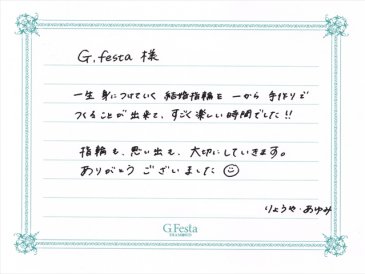 G.festa 様
一生 身につけていく 結婚指輪を 一から 手作りで
つくることが 出来て、すごく楽しい時間でした!!
指輪も、思い出も、大切にしていきます。
ありがとう ございました
りょうや・あゆみ
G.Festa